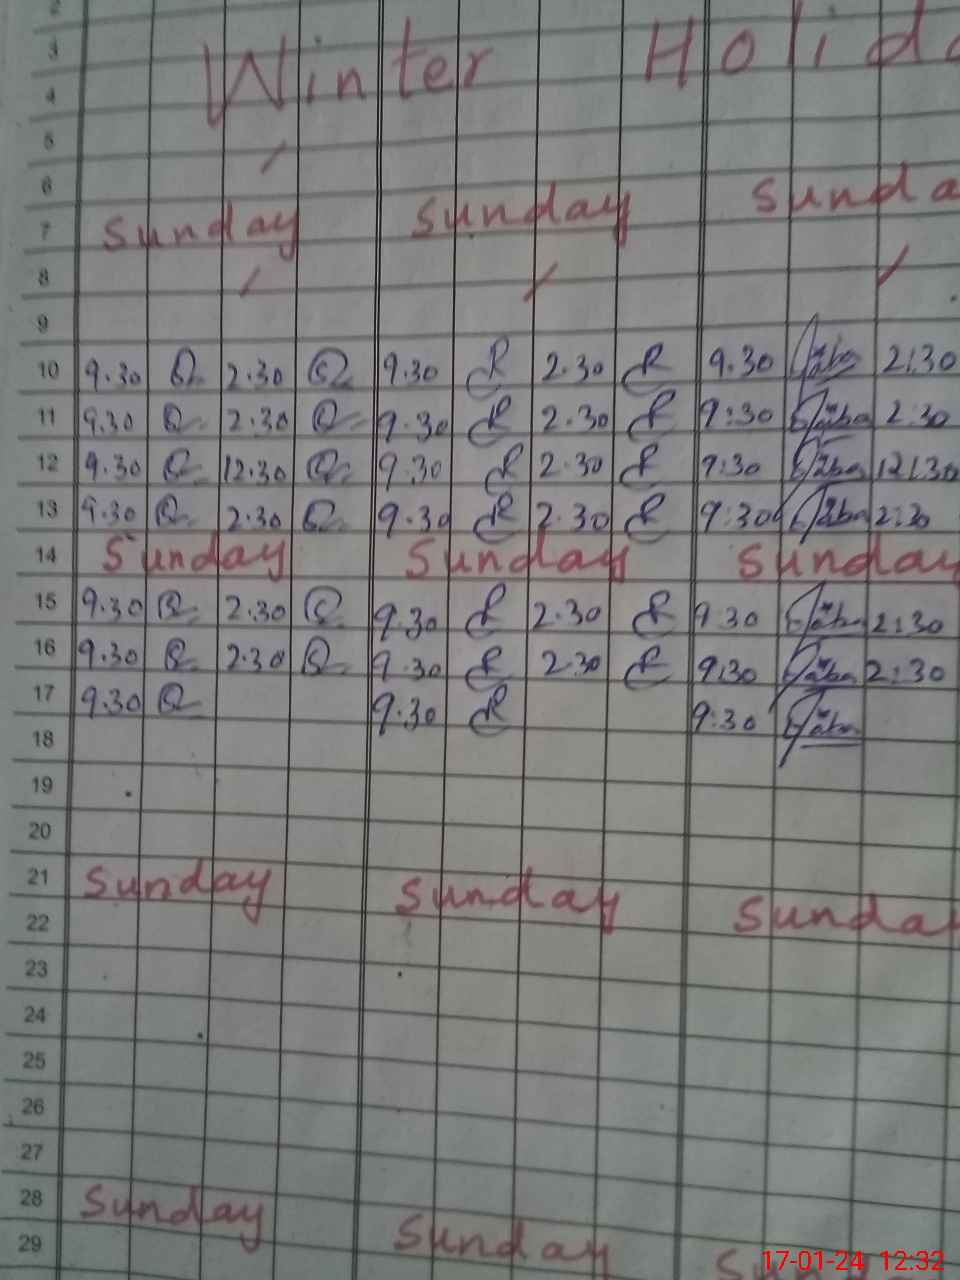 2
3
Winter Holida
4
5
6
7 Sunday Sunday Sunda
8
9
10 9.30 2.30 9.30 2.30 9.30 2:30
11 9.30 2.30 9.30 2.30 9:30 2:30
12 9.30 12.30 9.30 2.30 9:30 12:30
13 9.30 2.30 9.30 2.30 9:30 2:30
14 Sunday Sunday Sunday
15 9.30 2.30 9.30 2.30 9:30 2:30
16 9.30 2.30 9.30 2.30 9:30 2:30
17 9.30 9.30 9:30
18
19
20
21 Sunday Sunday Sunday
22
23
24
25
26
27
28 Sunday Sunday
29
17-01-24 12:32